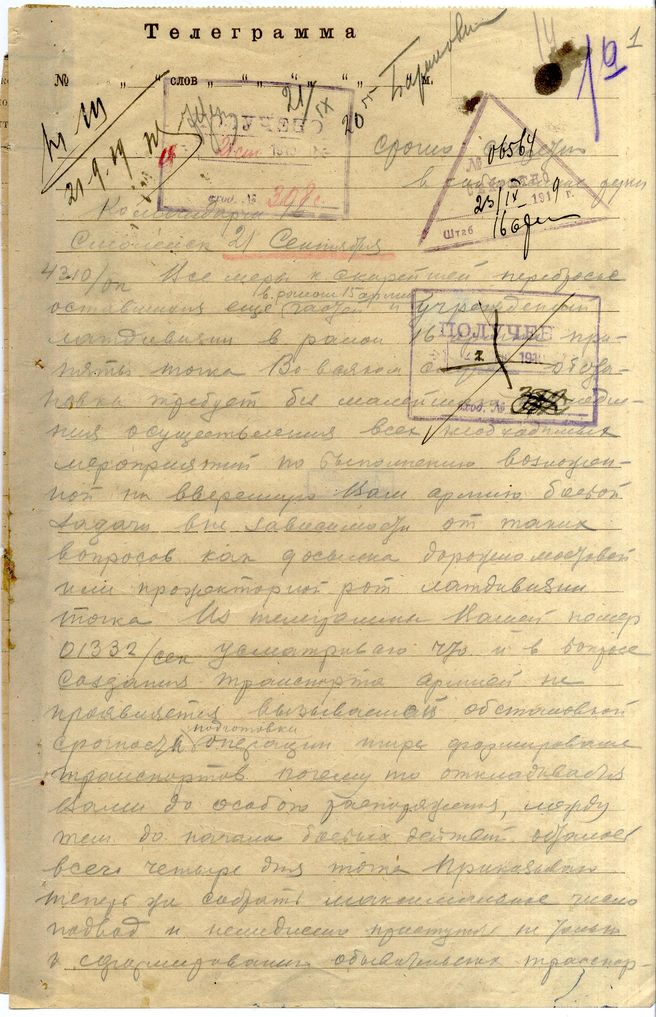 Телеграмма
№ " " слов " " " " м.
21/IX
20 55
19
1
21-9-19
ПОЛУЧЕНО
вход. №
срочно
№ 06564
в собственные руки
23/IX 1919 г.
Штаб
Смоленск 21 Сентября
4310/оп Все меры к скорейшей переброске
в район 15 армии
оставшихся еще частей и учреждений
латдивизии в район 16 при-
ПОЛУЧЕН
няты точка Во всяком обста-
191
новка требует без малейшего
вход. №
ния осуществления всех необходимых
мероприятий по выполнению возложен-
ной на вверенную Вам армию боевой
задачи вне зависимости от таких
вопросов как досылка дорожно мостовой
или прожекторной рот латдивизии
точка Из телеграммы Вашей номер
01332/сек усматриваю что и в вопросе
создания транспорта армией не
проявляется вызываемой обстановкой
подготовки
срочность операции
транспортов почему то откладывается
Вами до особого распоряжения, между
тем до начала боевых действий осталось
всего четыре дня точка Приказываю
теперь же собрать максимальное число
подвод и немедленно приступить не только
к сформированию обывательских транспор-